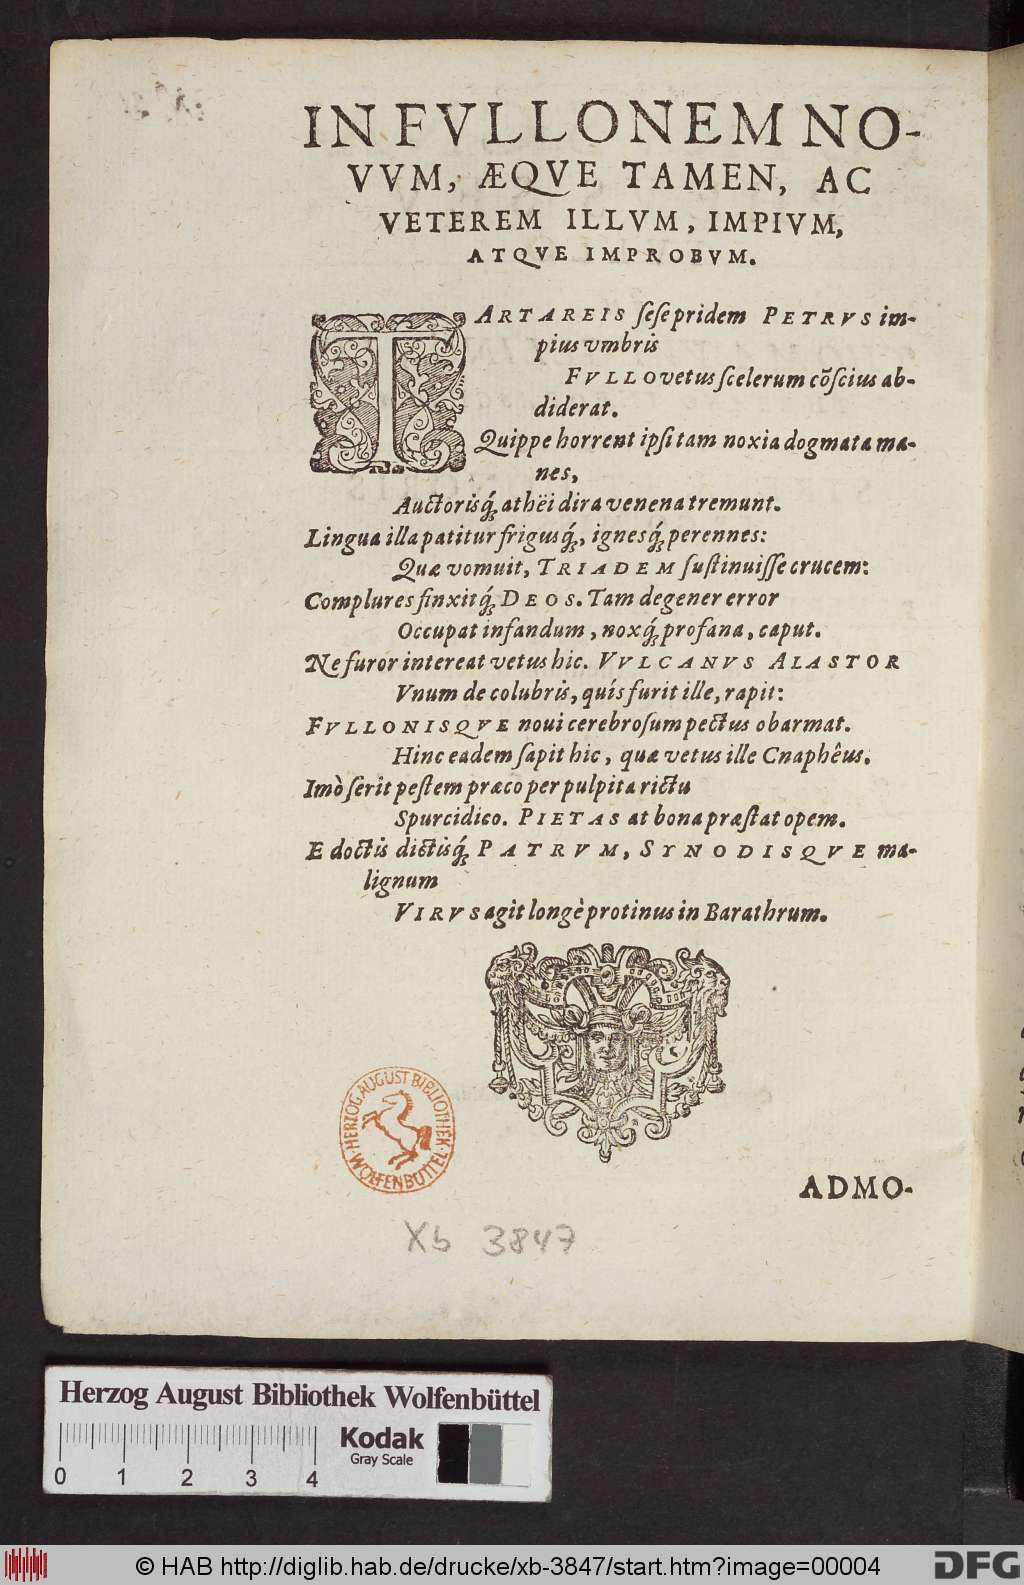 IN FVLLONEM NO-
VVM, ÆQVE TAMEN, AC
VETEREM ILLVM, IMPIVM,
ATQVE IMPROBVM.
TARTAREIS sese pridem PETRVS im-
pius vmbris
FVLLO vetus scelerum cōscius ab-
diderat.
Quippe horrent ipsi tam noxia dogmata ma-
nes,
Auctorisq́; athëi dira venena tremunt.
Lingua illa patitur frigusq́;, ignesq́; perennes:
Quæ vomuit, TRIADEM sustinuisse crucem:
Complures finxitq́; DEOS. Tam degener error
Occupat infandum, noxq́; profana, caput.
Ne furor intereat vetus hic. VVLCANVS ALASTOR
Vnum de colubris, quís furit ille, rapit:
FVLLONISQVE noui cerebrosum pectus obarmat.
Hinc eadem sapit hic, quæ vetus ille Cnaphêus.
Imò serit pestem præco per pulpita rictu
Spurcidico. PIETAS at bona præstat opem.
E doctis dictisq́; PATRVM, SYNODISQVE ma-
lignum
VIRVS agit longè protinus in Barathrum.
HERZOG AUGUST BIBLIOTHEK
WOLFENBÜTTEL
ADMO-
Xb 3847
Herzog August Bibliothek Wolfenbüttel
0 1 2 3 4
Kodak
Gray Scale
© HAB http://diglib.hab.de/drucke/xb-3847/start.htm?image=00004
DFG